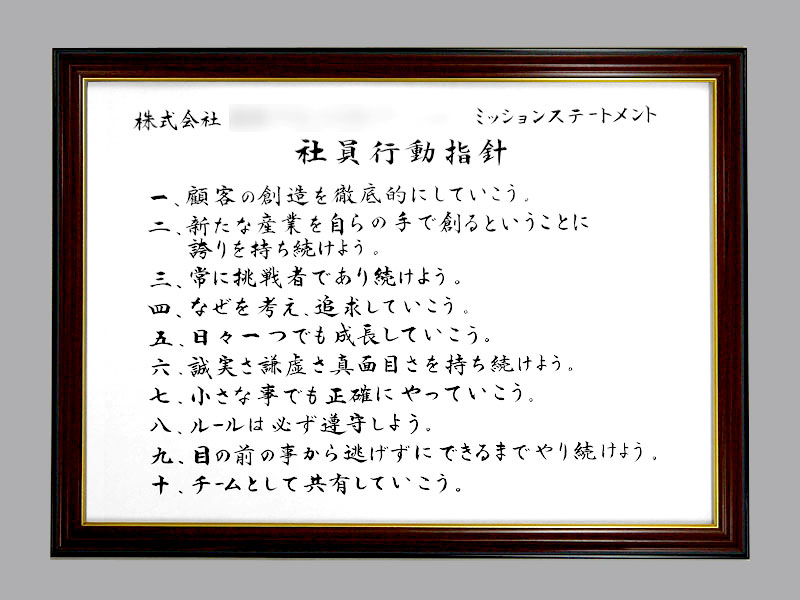 株式会社
ミッションステートメント
社員行動指針
一、顧客の創造を徹底的にしていこう。
二、新たな産業を自らの手で創るということに
誇りを持ち続けよう。
三、常に挑戦者であり続けよう。
四、なぜを考え、追求していこう。
五、日々一つでも成長していこう。
六、誠実さ謙虚さ真面目さを持ち続けよう。
七、小さな事でも正確にやっていこう。
八、ルールは必ず遵守しよう。
九、目の前の事から逃げずにできるまでやり続けよう。
十、チームとして共有していこう。